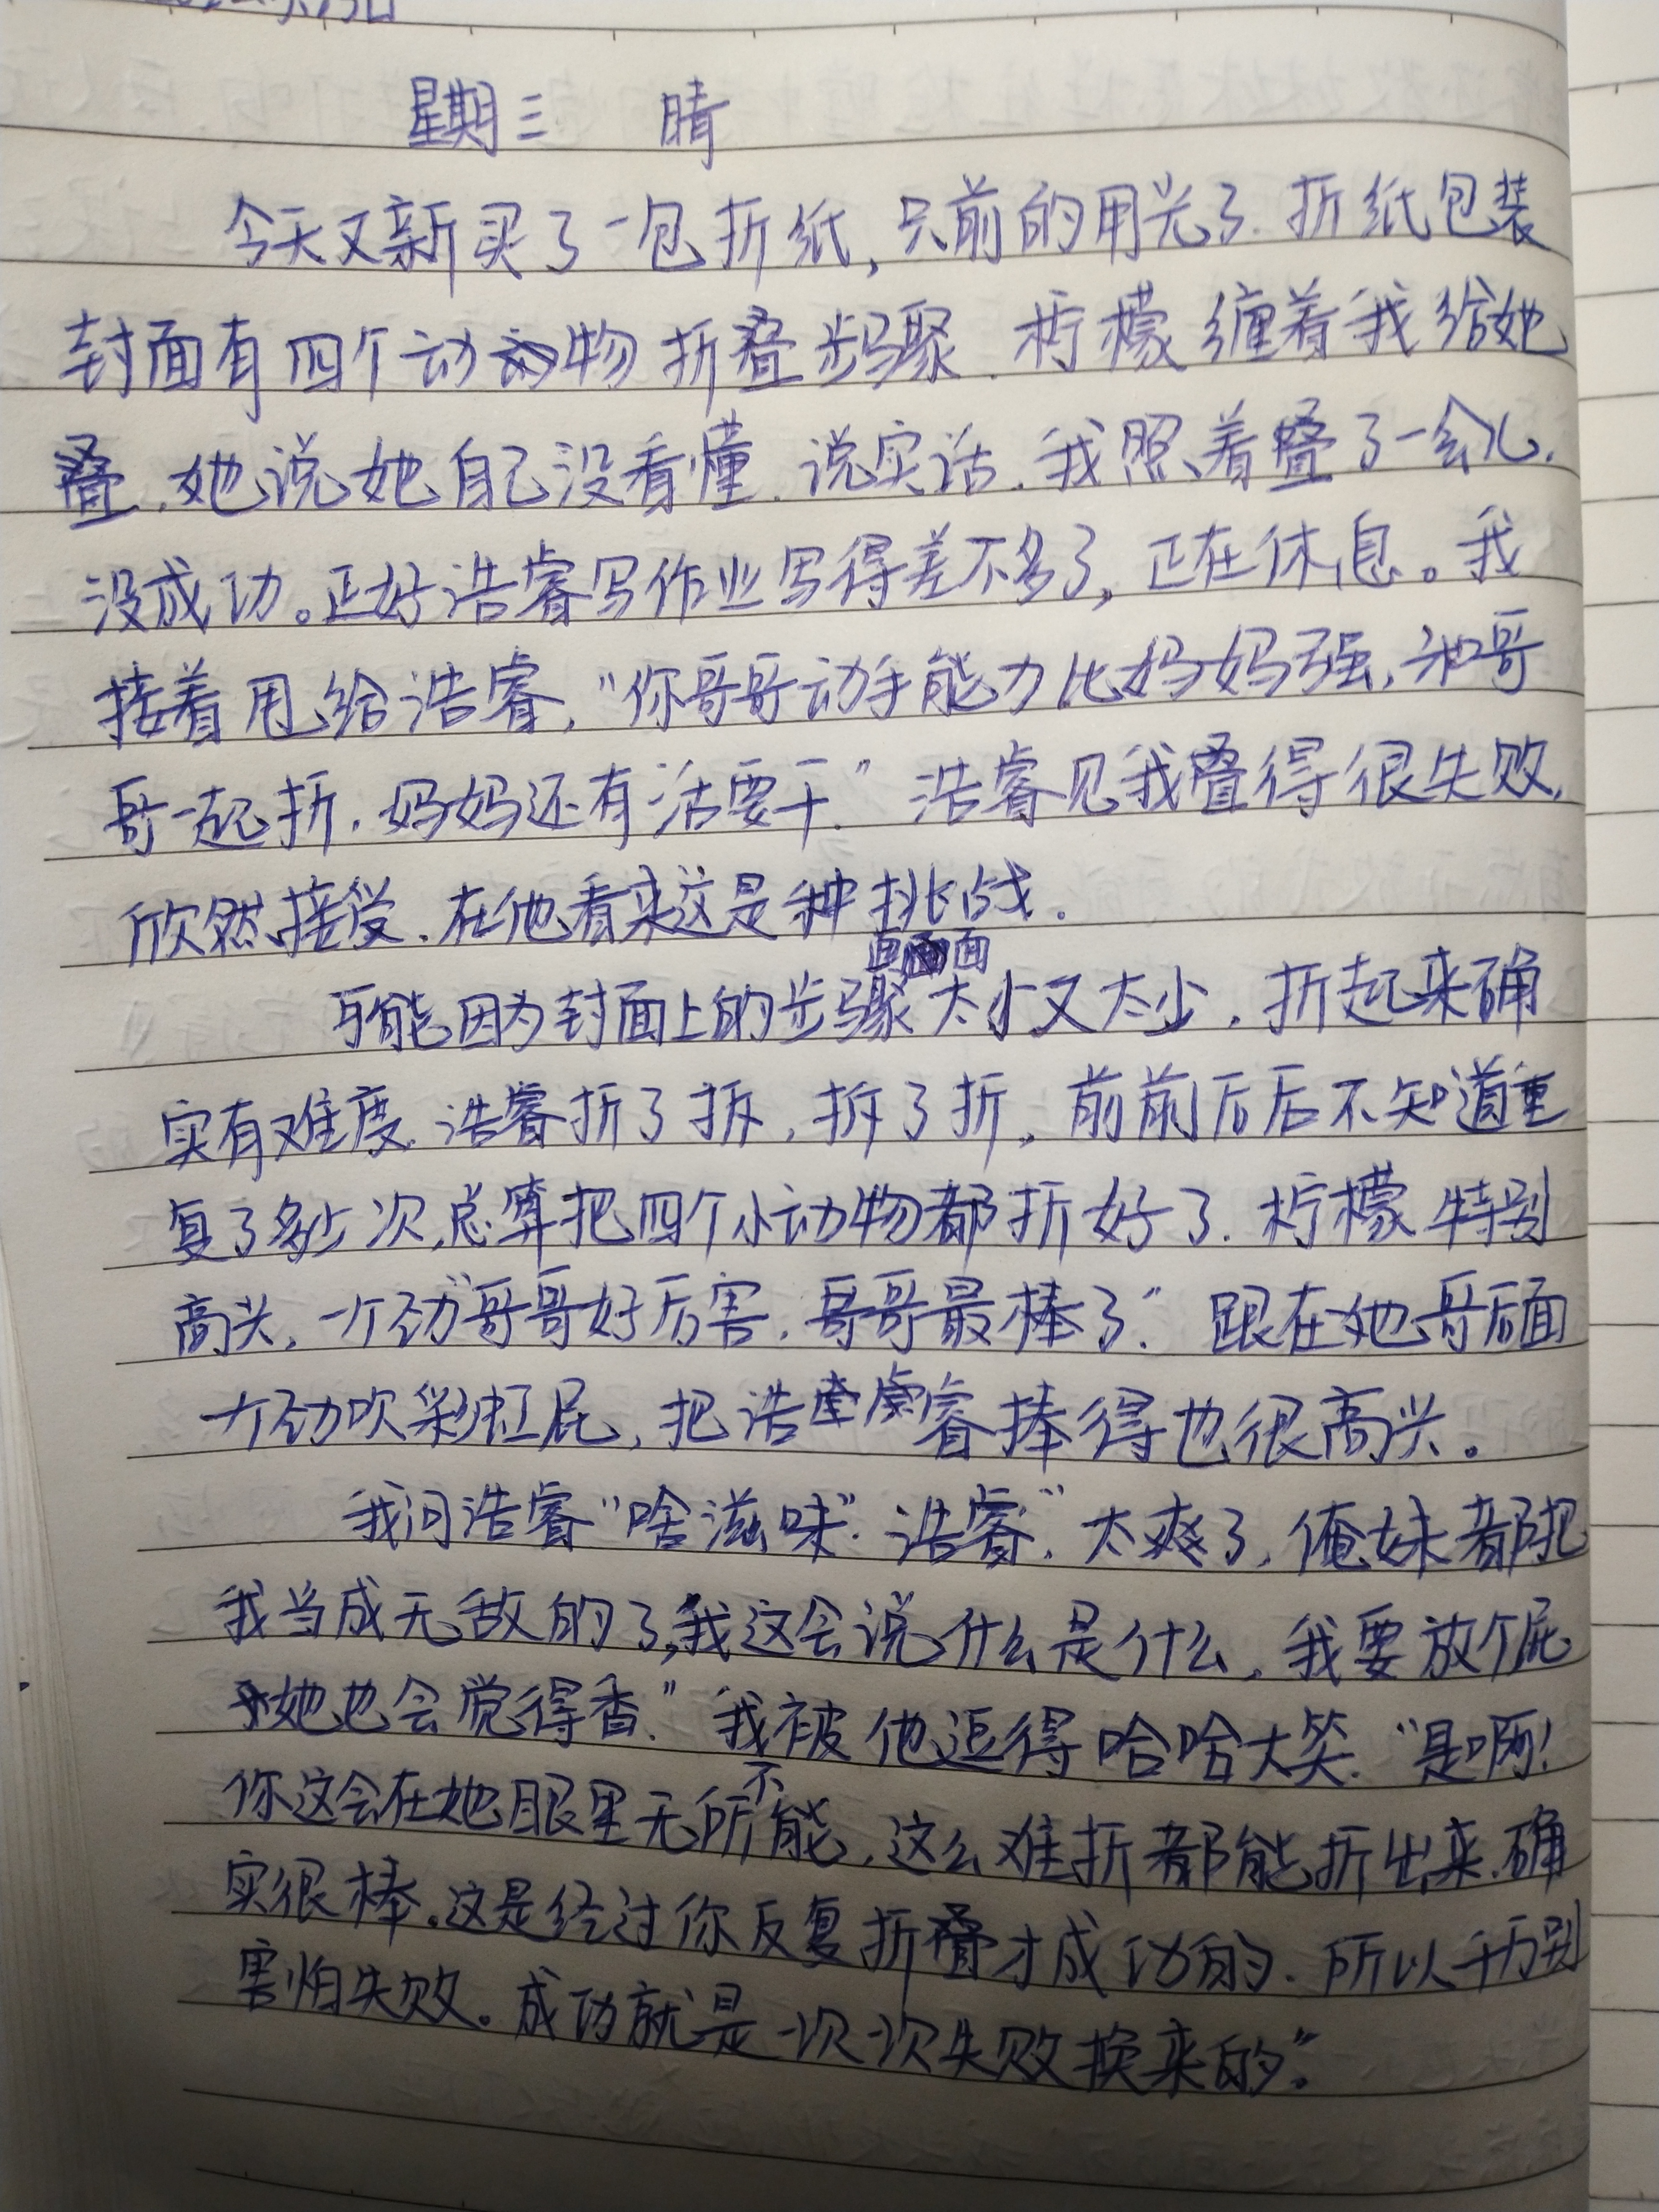 星期三 晴
今天又新买了一包折纸,只前的用光了.折纸包装
封面有四个动物折叠步骤.柠檬缠着我给她
叠.她说她自己没看懂.说实话.我照着叠了一会儿.
没成功。正好浩睿写作业写得差不多了,正在休息。我
接着甩给浩睿,"你哥哥动手能力比妈妈强,和哥
哥一起折.妈妈还有活要干."浩睿见我叠得很失败,
欣然接受.在他看来这是种挑战.
可能因为封面上的步骤画面太小又太少.折起来确
实有难度.浩睿折了拆,拆了折,前前后后不知道重
复了多少次,总算把四个小动物都折好了.柠檬特别
高兴.一个劲"哥哥好厉害.哥哥最棒了."跟在她哥后面
一个劲吹彩虹屁,把浩睿捧得也很高兴。
我问浩睿"啥滋味".浩睿"太爽了,俺妹都把
我当成无敌的了,我这会说什么是什么,我要放个屁
她也会觉得香."我被他逗得哈哈大笑."是啊!
你这会在她眼里无所不能,这么难折都能折出来.确
实很棒.这是经过你反复折叠才成功的.所以千万别
害怕失败。成功就是一次次失败换来的."